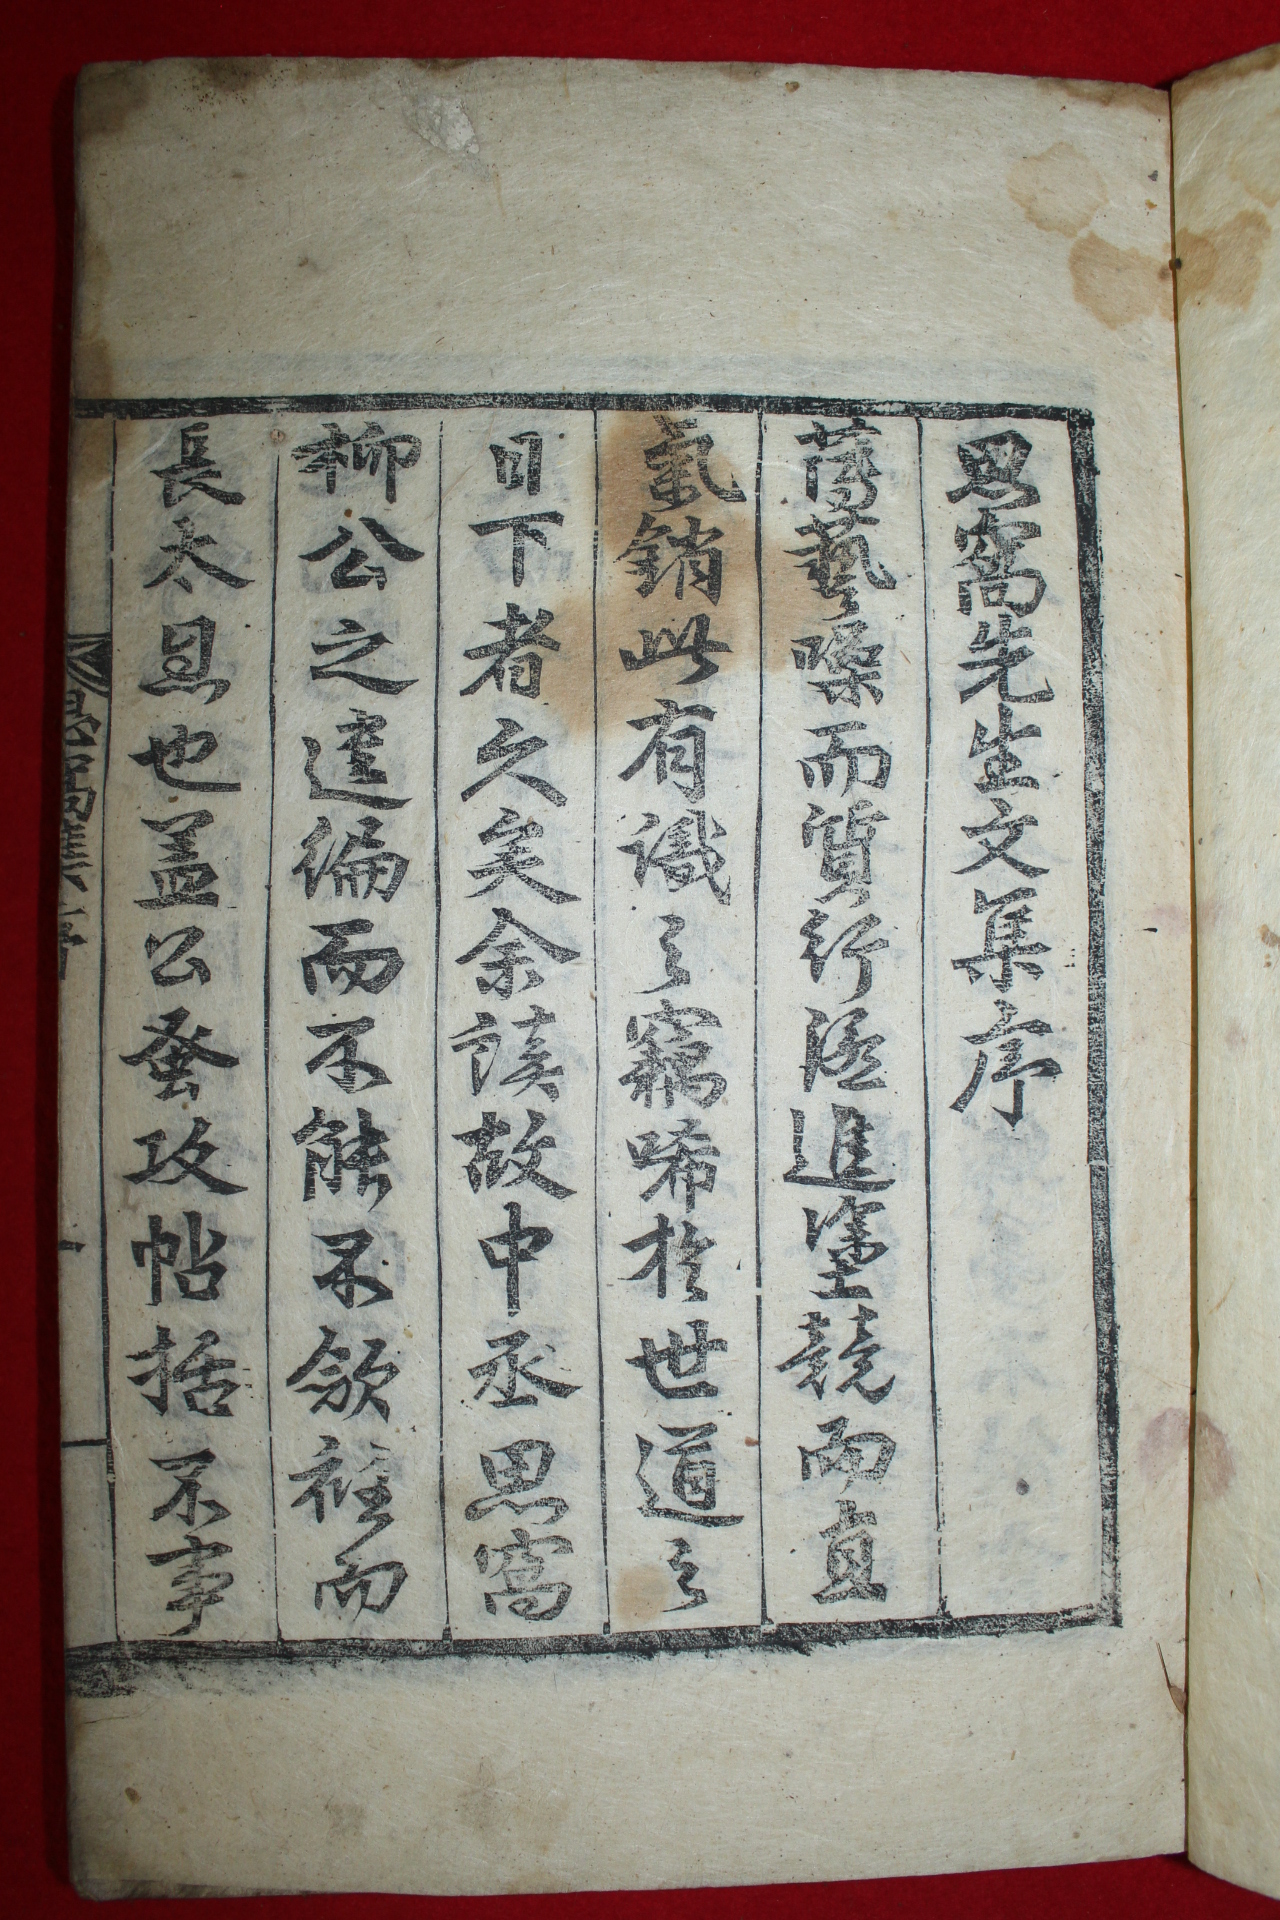 思窩先生文集序
薄藝噪而質行湮進塗競而直
氣銷此有識之竊唏於世道之
日下者久矣余讀故中丞思窩
柳公之遺編而不能不歛衽而
長太息也盖公蚤攻帖括不事
思窩集序
一